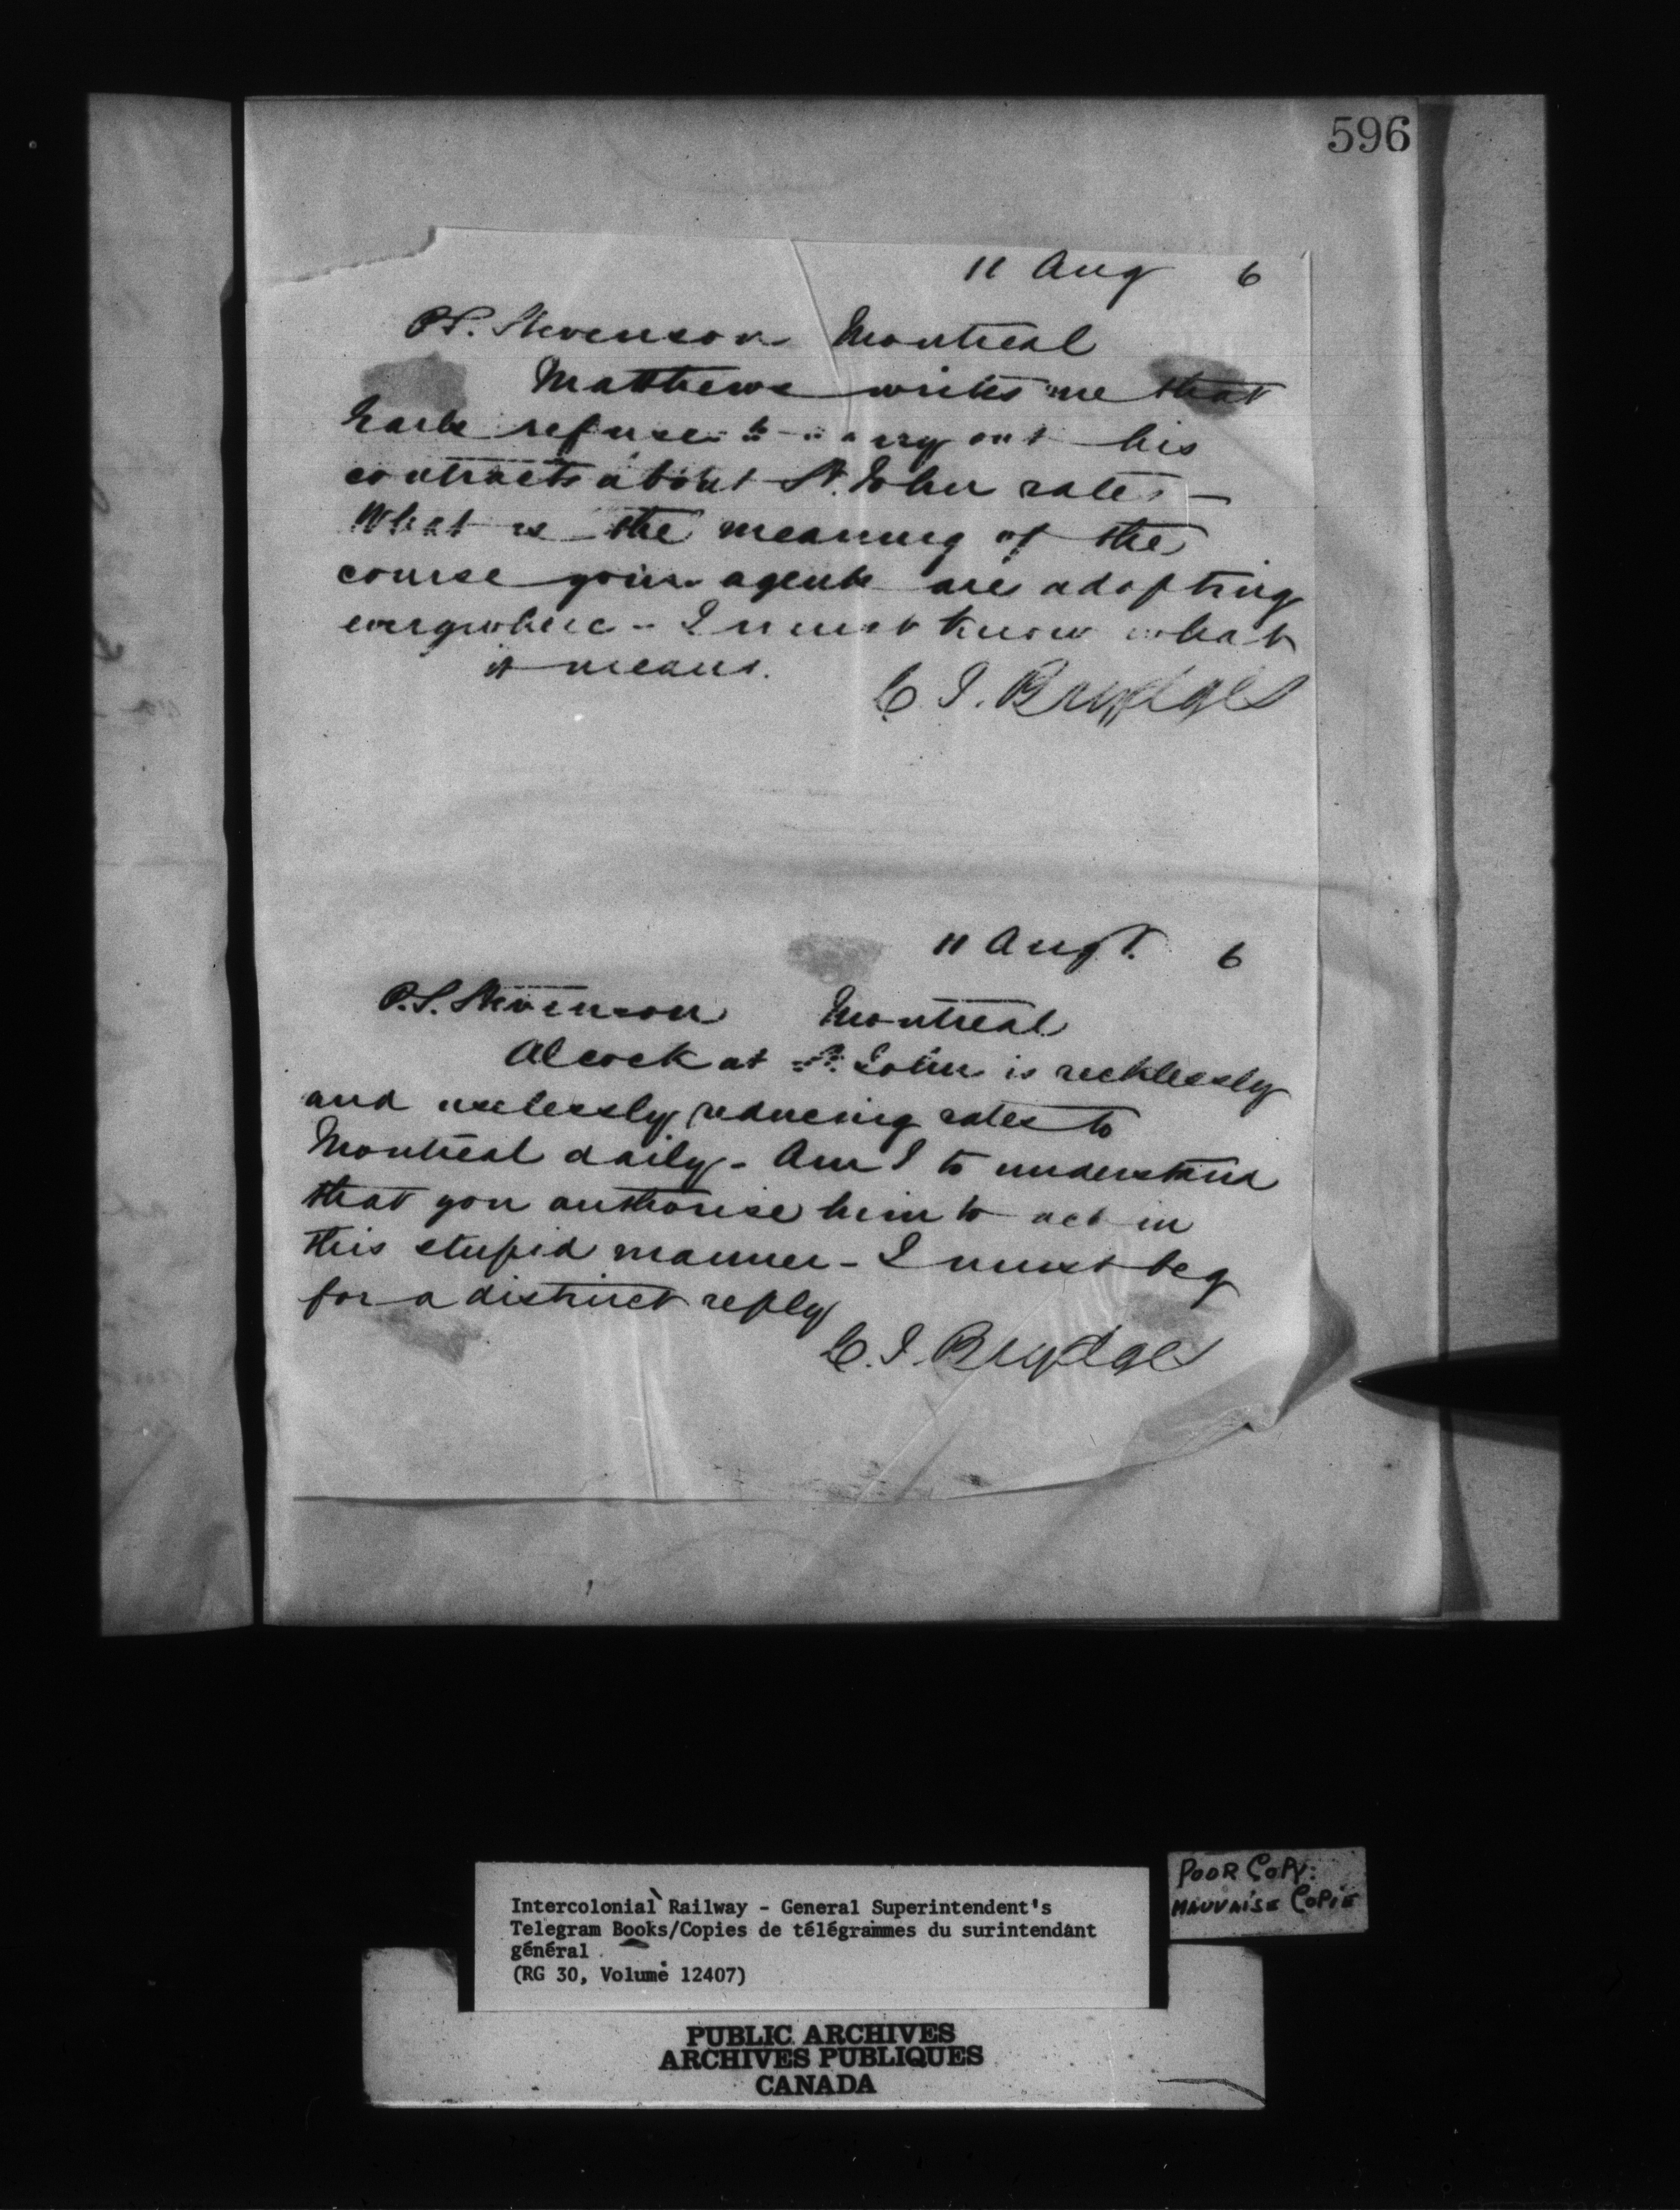 596
11 Aug 6
P.S. Stevenson Montreal
Matthews writes me that
Earle refuses to carry out his
contracts about St. John rates –
What is the meaning of the
course your agents are adopting
everywhere – I must know what
it means.
C. J. Brydges
11 Augt. 6
P.S. Stevenson Montreal
Alcock at St. John is recklessly
and uselessly reducing rates to
Montreal daily – Am I to understand
that you authorise him to act in
this stupid manner – I must beg
for a distinct reply
C. J. Brydges
Intercolonial Railway - General Superintendent's
Telegram Books/Copies de télégrammes du surintendant
général
(RG 30, Volume 12407)
POOR COPY.
MAUVAISE COPIE
PUBLIC ARCHIVES
ARCHIVES PUBLIQUES
CANADA